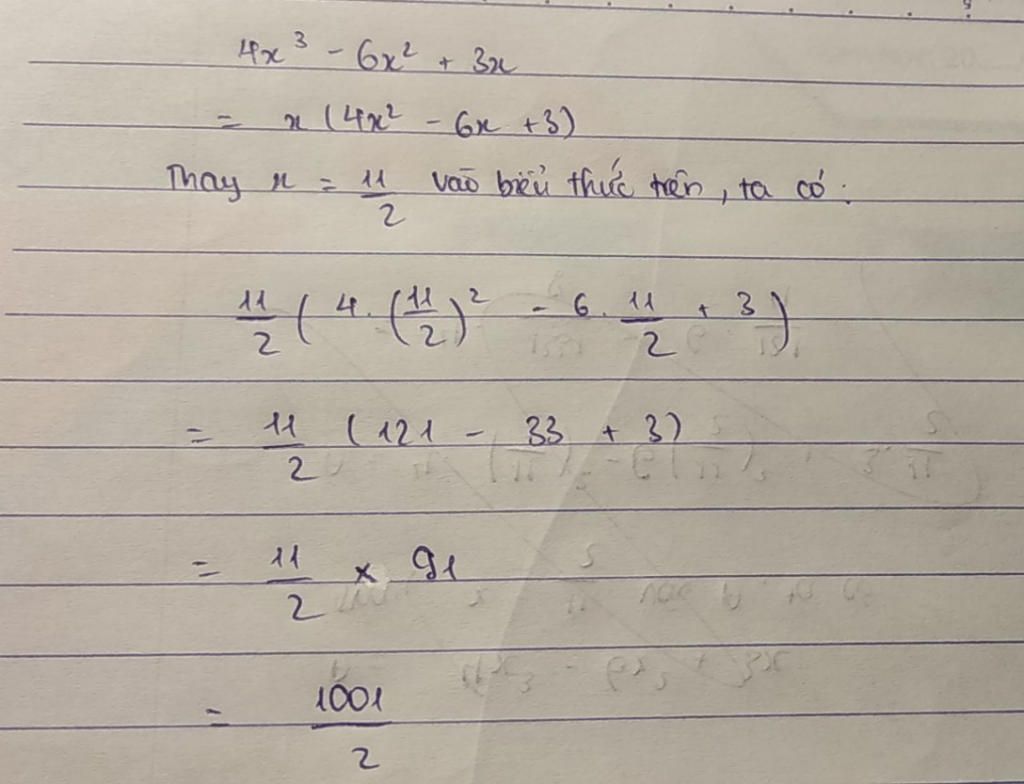 4x³ - 6x² + 3x
= x (4x² - 6x + 3)
Thay x = 11/2 vào biểu thức trên, ta có:
11/2 ( 4. (11/2)² - 6. 11/2 + 3 )
= 11/2 (121 - 33 + 3)
= 11/2 x 91
= 1001/2